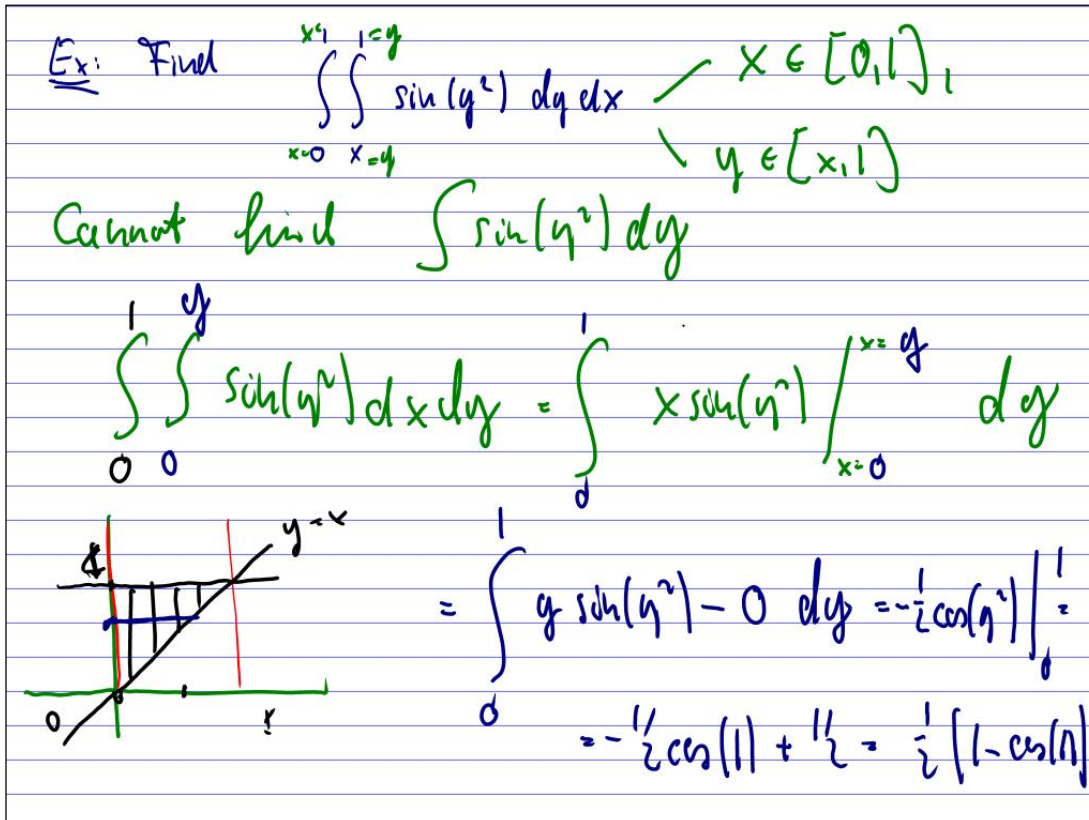 Ex: Find ∫_{x=0}^{x=1} ∫_{x=y}^{1=y} sin(y²) dy dx
x ∈ [0,1],
y ∈ [x,1]
Cannot find ∫ sin(y²) dy
∫_0^1 ∫_0^y sin(y²) dx dy = ∫_0^1 x sin(y²) |_{x=0}^{x=y} dy
y=x
0
= ∫_0^1 y sin(y²) - 0 dy = -1/2 cos(y²) |_0^1 =
= -1/2 cos(1) + 1/2 = 1/2 [1-cos(1)]